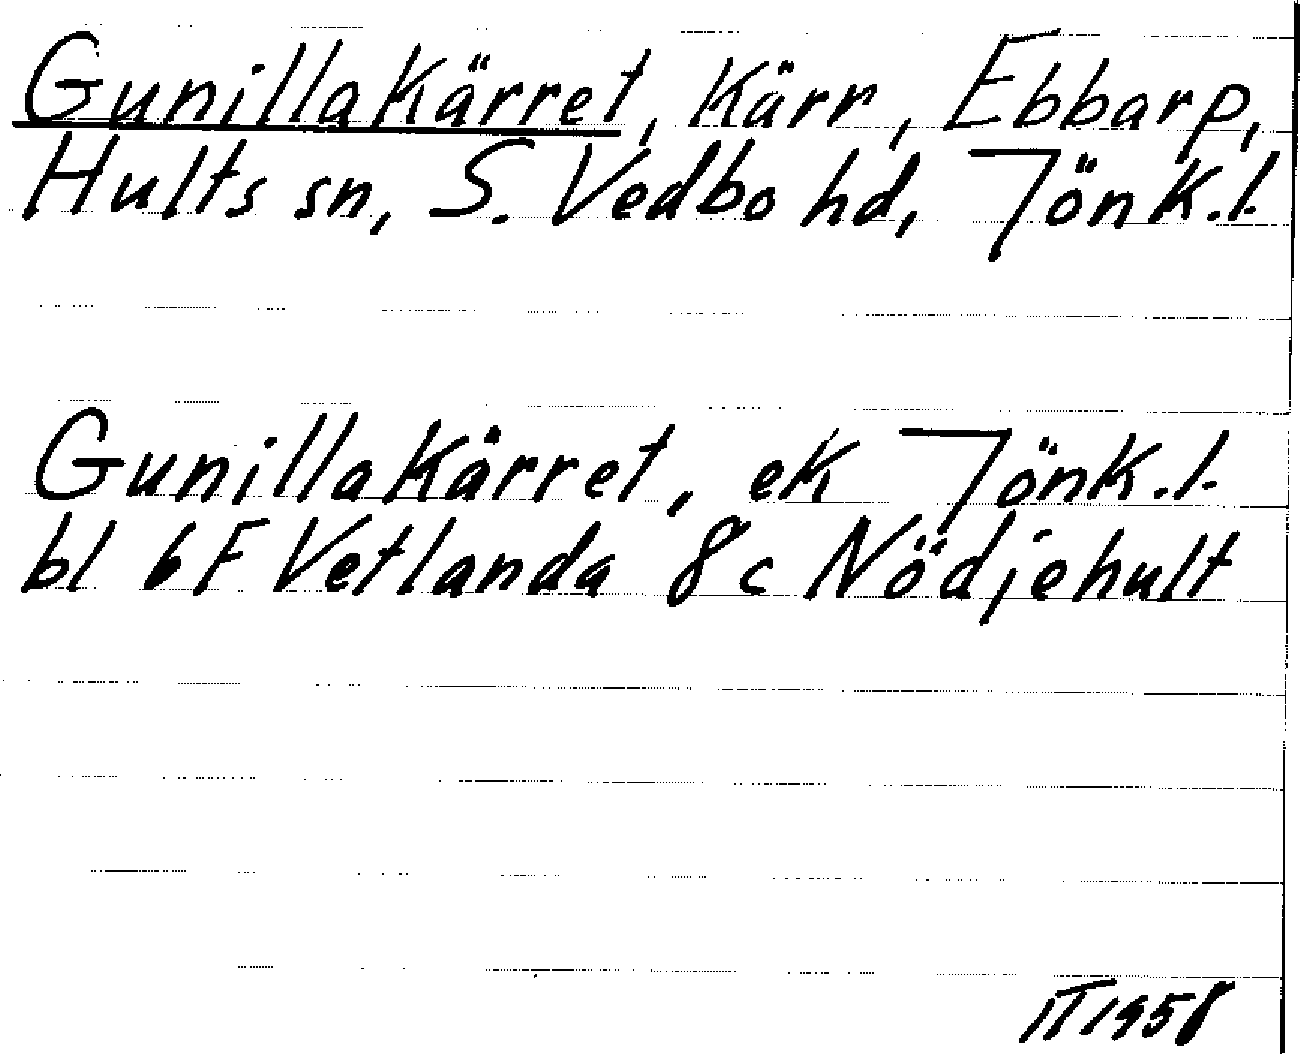 Gunillakärret, Kärr, Ebbarp,
Hults sn, S. Vedbo hd, Jönk.l.
Gunillakärret, ek Jönk.l.
bl 6F Vetlanda 8c Nödjehult
IT 1958